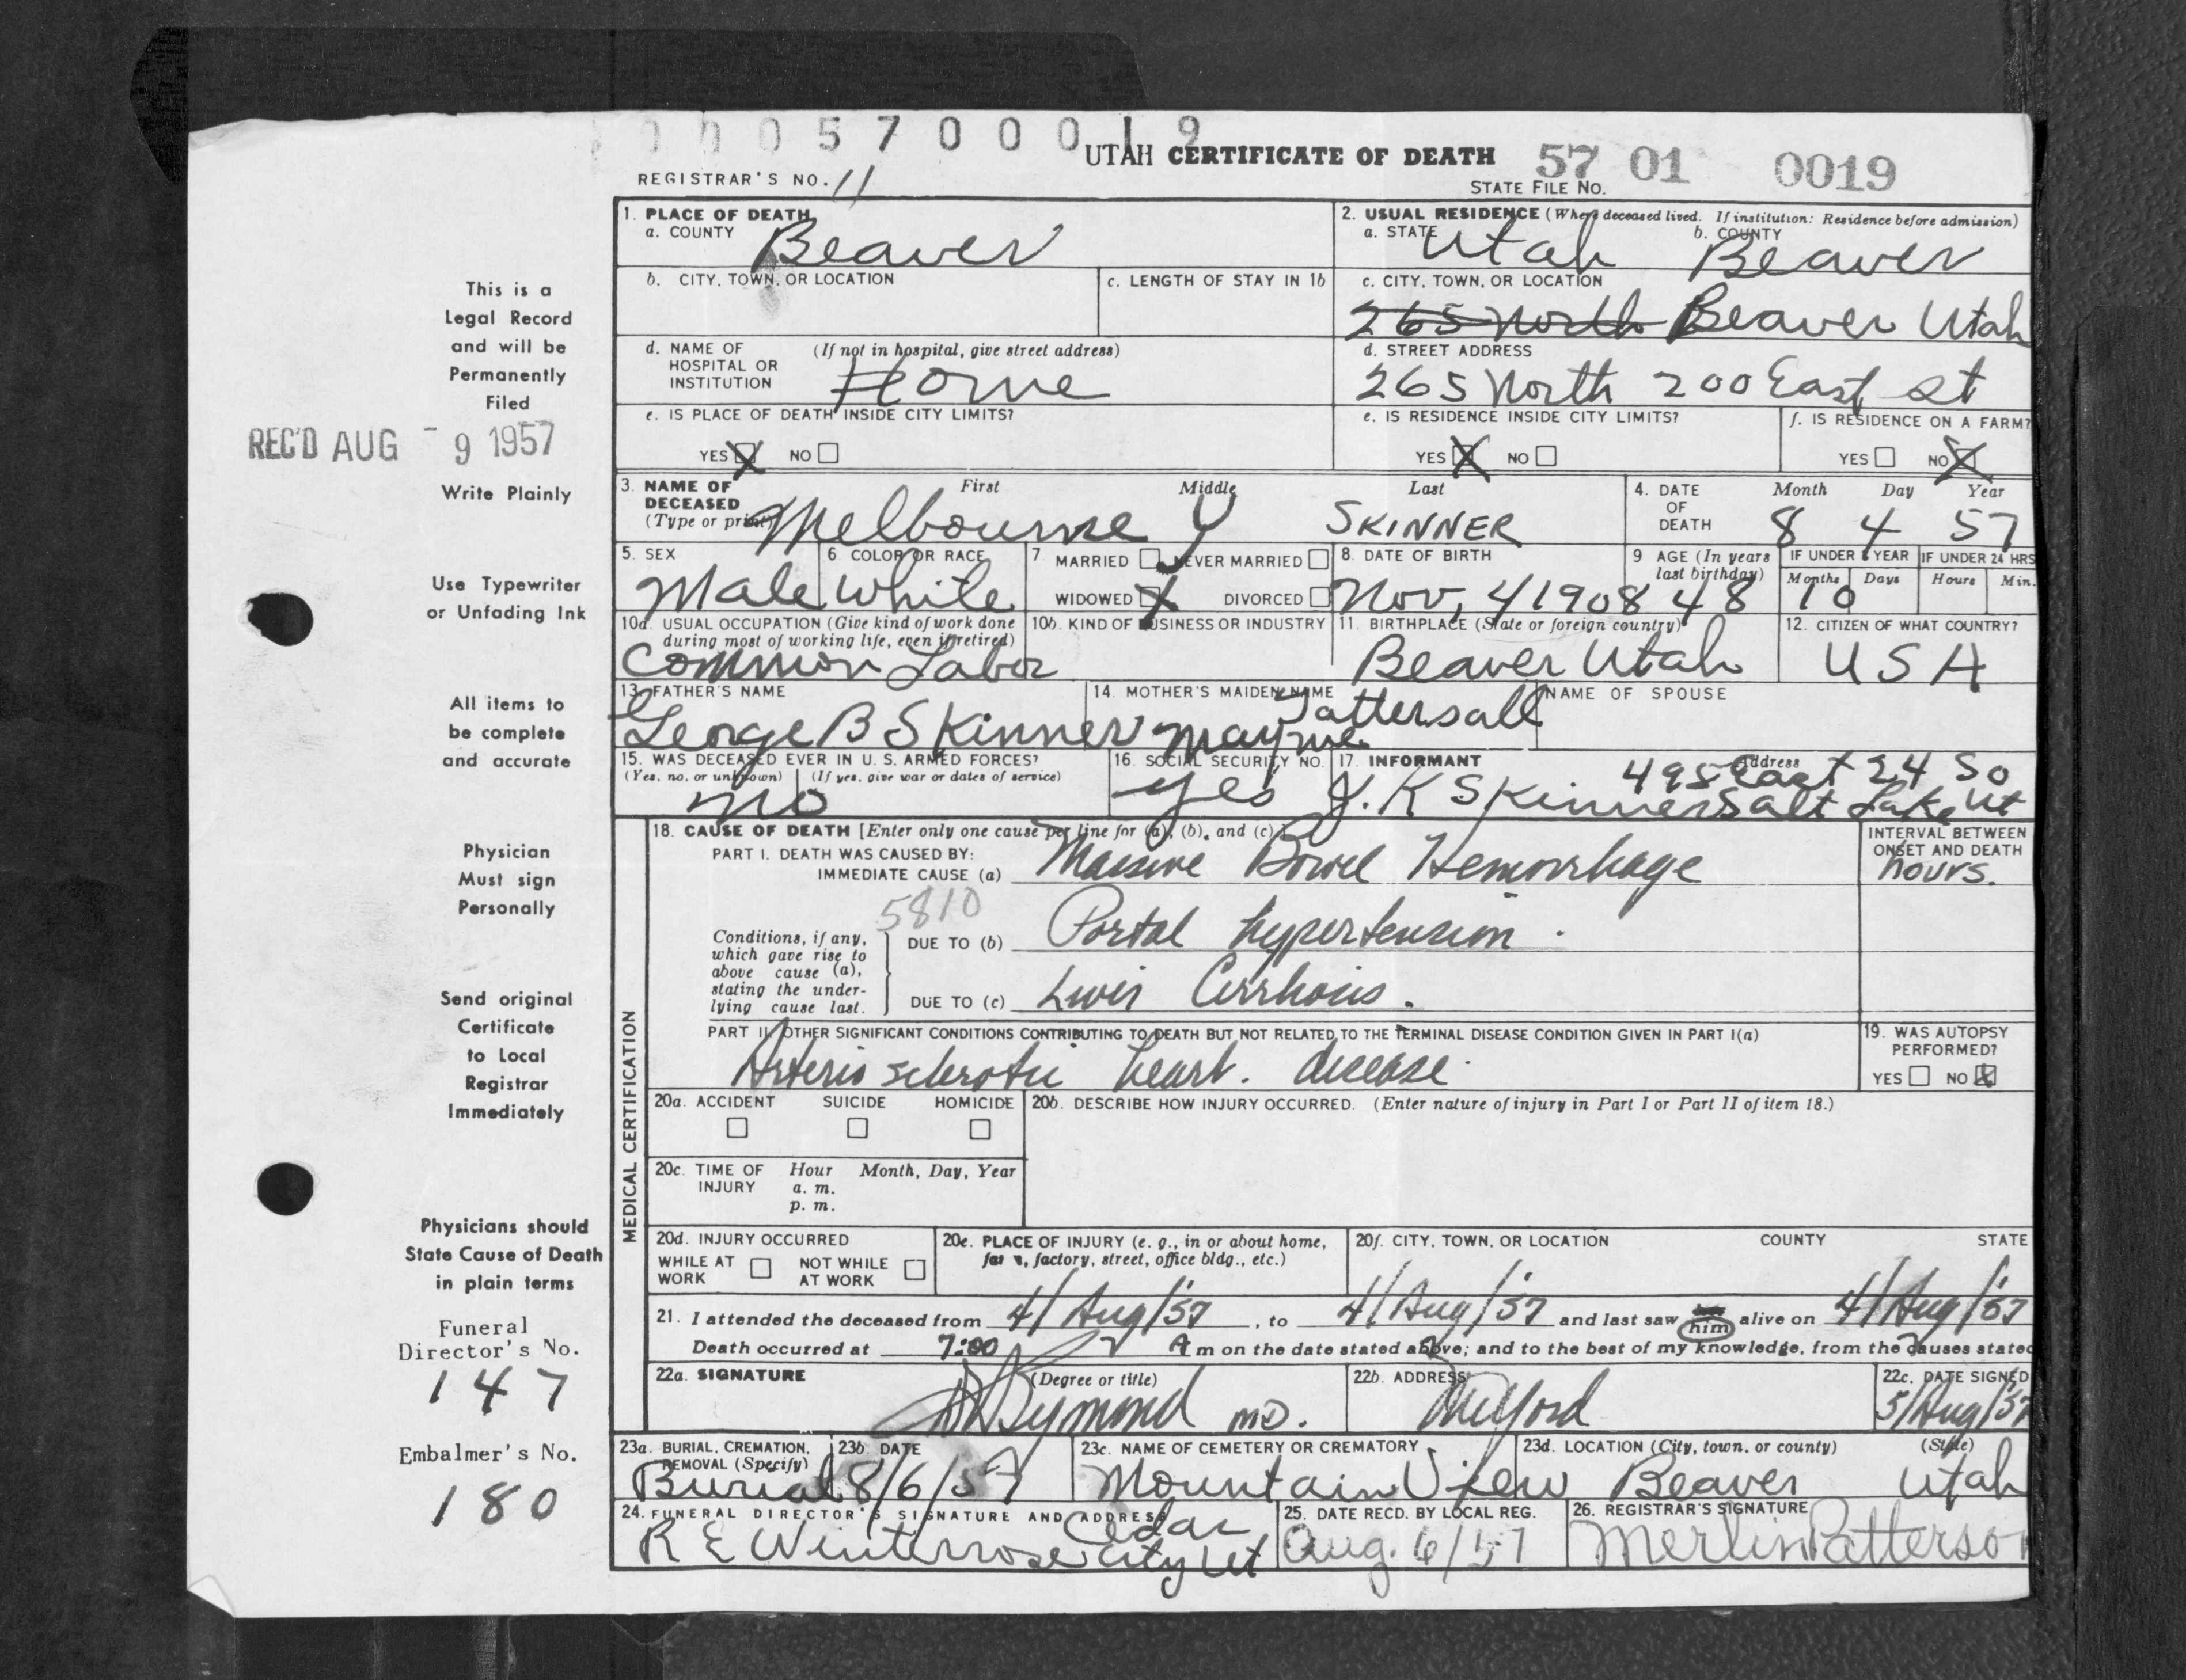 0 0 0 5 7 0 0 0 1 9
UTAH CERTIFICATE OF DEATH 57 01 0019
REGISTRAR'S NO. 11
STATE FILE NO.
1. PLACE OF DEATH
a. COUNTY Beaver
2. USUAL RESIDENCE (Where deceased lived. If institution: Residence before admission)
a. STATE Utah b. COUNTY Beaver
b. CITY, TOWN, OR LOCATION
c. LENGTH OF STAY IN 1b
c. CITY, TOWN, OR LOCATION
265 North Beaver Utah
d. NAME OF HOSPITAL OR INSTITUTION (If not in hospital, give street address)
Home
d. STREET ADDRESS
265 North 200 East St
e. IS PLACE OF DEATH INSIDE CITY LIMITS?
YES X NO
e. IS RESIDENCE INSIDE CITY LIMITS?
YES X NO
f. IS RESIDENCE ON A FARM?
YES NO X
3. NAME OF DECEASED (Type or print)
First Middle Last
Melbourne Y SKINNER
4. DATE OF DEATH Month Day Year
8 4 57
5. SEX
Male
6 COLOR OR RACE
White
7 MARRIED NEVER MARRIED
WIDOWED X DIVORCED
8. DATE OF BIRTH
Nov, 4 1908
9 AGE (In years last birthday)
48
IF UNDER 1 YEAR IF UNDER 24 HRS
Months Days Hours Min.
10
10a. USUAL OCCUPATION (Give kind of work done during most of working life, even if retired)
Common Labor
10b. KIND OF BUSINESS OR INDUSTRY
11. BIRTHPLACE (State or foreign country)
Beaver Utah
12. CITIZEN OF WHAT COUNTRY?
USA
13. FATHER'S NAME
George B Skinner
14. MOTHER'S MAIDEN NAME
Tattersall
Mayme
NAME OF SPOUSE
15. WAS DECEASED EVER IN U. S. ARMED FORCES?
(Yes, no, or unknown) (If yes, give war or dates of service)
no
16. SOCIAL SECURITY NO.
yes
17. INFORMANT Address
J. K Skinner 495 East 24 So
Salt Lake Ut
MEDICAL CERTIFICATION
18. CAUSE OF DEATH [Enter only one cause per line for (a), (b), and (c).]
PART I. DEATH WAS CAUSED BY:
IMMEDIATE CAUSE (a) Massive Bowel Hemorrhage
INTERVAL BETWEEN ONSET AND DEATH
hours.
5810
Conditions, if any, which gave rise to above cause (a), stating the under-lying cause last.
DUE TO (b) Portal hypertension.
DUE TO (c) Liver Cirrhosis.
PART II. OTHER SIGNIFICANT CONDITIONS CONTRIBUTING TO DEATH BUT NOT RELATED TO THE TERMINAL DISEASE CONDITION GIVEN IN PART I(a)
Arterio sclerotic heart. disease.
19. WAS AUTOPSY PERFORMED?
YES NO X
20a. ACCIDENT SUICIDE HOMICIDE
20b. DESCRIBE HOW INJURY OCCURRED. (Enter nature of injury in Part I or Part II of item 18.)
20c. TIME OF INJURY Hour Month, Day, Year
a. m.
p. m.
20d. INJURY OCCURRED
WHILE AT WORK NOT WHILE AT WORK
20e. PLACE OF INJURY (e. g., in or about home, farm, factory, street, office bldg., etc.)
20f. CITY, TOWN, OR LOCATION COUNTY STATE
21. I attended the deceased from 4/Aug/'57, to 4/Aug/'57 and last saw him alive on 4/Aug/'57
Death occurred at 7:00 A m on the date stated above; and to the best of my knowledge, from the causes stated
22a. SIGNATURE (Degree or title)
Symond MD.
22b. ADDRESS
Milford
22c. DATE SIGNED
5/Aug/'57
23a. BURIAL, CREMATION, REMOVAL (Specify)
Burial
23b. DATE
8/6/57
23c. NAME OF CEMETERY OR CREMATORY
Mountain View
23d. LOCATION (City, town, or county) (State)
Beaver Utah
24. FUNERAL DIRECTOR'S SIGNATURE AND ADDRESS
R E Winterrose Cedar City Ut
25. DATE RECD. BY LOCAL REG.
Aug. 6/57
26. REGISTRAR'S SIGNATURE
Merlin Patterson
This is a
Legal Record
and will be
Permanently
Filed
REC'D AUG - 9 1957
Write Plainly
Use Typewriter
or Unfading Ink
All items to
be complete
and accurate
Physician
Must sign
Personally
Send original
Certificate
to Local
Registrar
Immediately
Physicians should
State Cause of Death
in plain terms
Funeral
Director's No.
147
Embalmer's No.
180